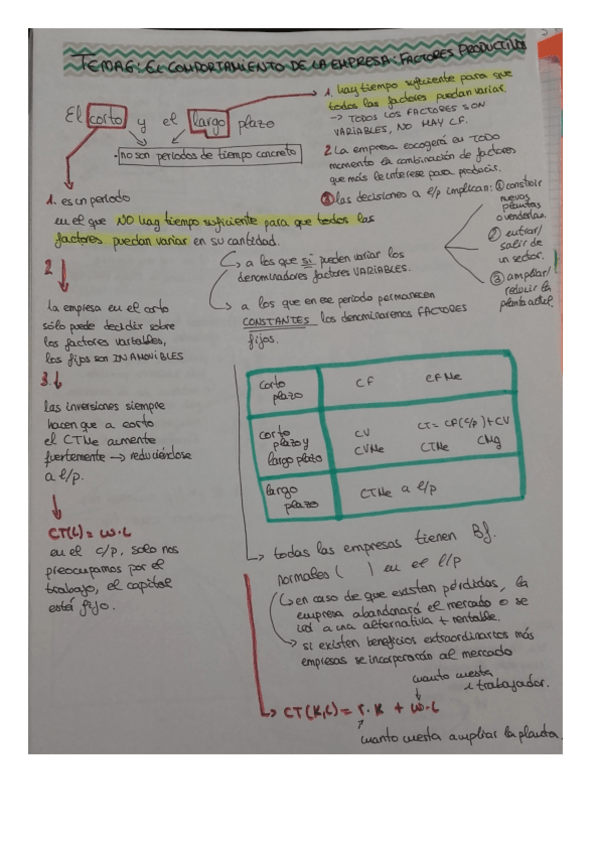 TEMA 6: EL COMPORTAMIENTO DE LA EMPRESA: FACTORES PRODUCTIVOS
El corto y el largo plazo
no son periodos de tiempo concreto
1. hay tiempo suficiente para que
todos los factores puedan variar.
→ TODOS LOS FACTORES SON
VARIABLES, NO HAY CF.
2. La empresa escogerá en TODO
momento la combinación de factores
que más le interese para producir.
3. las decisiones a l/p implican: ① construir
nuevas
plantas
o venderlas.
② entrar/
salir de
un sector.
③ ampliar/
reducir la
planta actual.
1. es un periodo
en el que NO hay tiempo suficiente para que todos los
factores puedan variar en su cantidad.
→ a los que si pueden variar los
denominadores factores VARIABLES.
→ a los que en ese periodo permanecen
CONSTANTES los denominaremos FACTORES
fijos.
2
la empresa en el corto
sólo puede decidir sobre
los factores variables,
los fijos son INAMOVIBLES
3.
las inversiones siempre
hacen que a corto
el CTMe aumente
fuertemente → reduciéndose
a l/p.
CT(L) = w·L
en el c/p, solo nos
preocupamos por el
trabajo, el capital
está fijo.
corto
plazo
CF CFMe
corto
plazo y
largo plazo
CV CT = CF(c/p) + CV
CVMe CTMe CMg
largo
plazo
CTMe a l/p
→ todas las empresas tienen Bf.
normales ( ) en el l/p
→ en caso de que existan pérdidas, la
empresa abandonará el mercado o se
irá a una alternativa + rentable.
→ si existen beneficios extraordinarios más
empresas se incorporarán al mercado
cuanto cuesta
1 trabajador.
→ CT(K,L) = r·K + w·L
cuanto cuesta ampliar la planta.